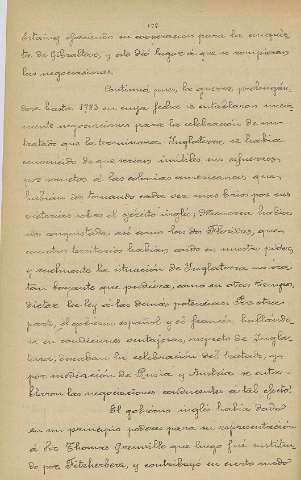 178
España ofrecido su cooperación para la conquis-
ta de Gibraltar, y esto dió lugar á que se rompieran
las negociaciones.
Continuó pues, la guerra, prolongán-
dose hasta 1783 en cuya fecha se entablaron nueva-
mente negociaciones para la celebración de un
tratado que la terminara. Inglaterra, se había
convencido de que serían inútiles sus esfuerzos
por someter á las colonias americanas que
habían ido tomando cada vez más bríos por sus
victorias sobre el ejército inglés; Menorca había
sido conquistada así como las dos Floridas, que
territorios habían caído en nuestro poder,
y realmente la situación de Inglaterra no era
tan boyante que pudiera, como en otros tiempos,
dictar la ley á las demás potencias. Por otra
parte, el gobierno español y el francés hallándo-
se en condiciones ventajosas, respecto de Ingla-
terra, deseaban la celebración del tratado, y
por mediación de Rusia y Austria se enta-
blaron las negociaciones conducentes á tal efecto.
El gobierno inglés había dado
en un principio poderes para su representación
á Sir Thomas Grenville que luego fué sustitui-
do por Fitzherbert, y contribuyó en cierto modo